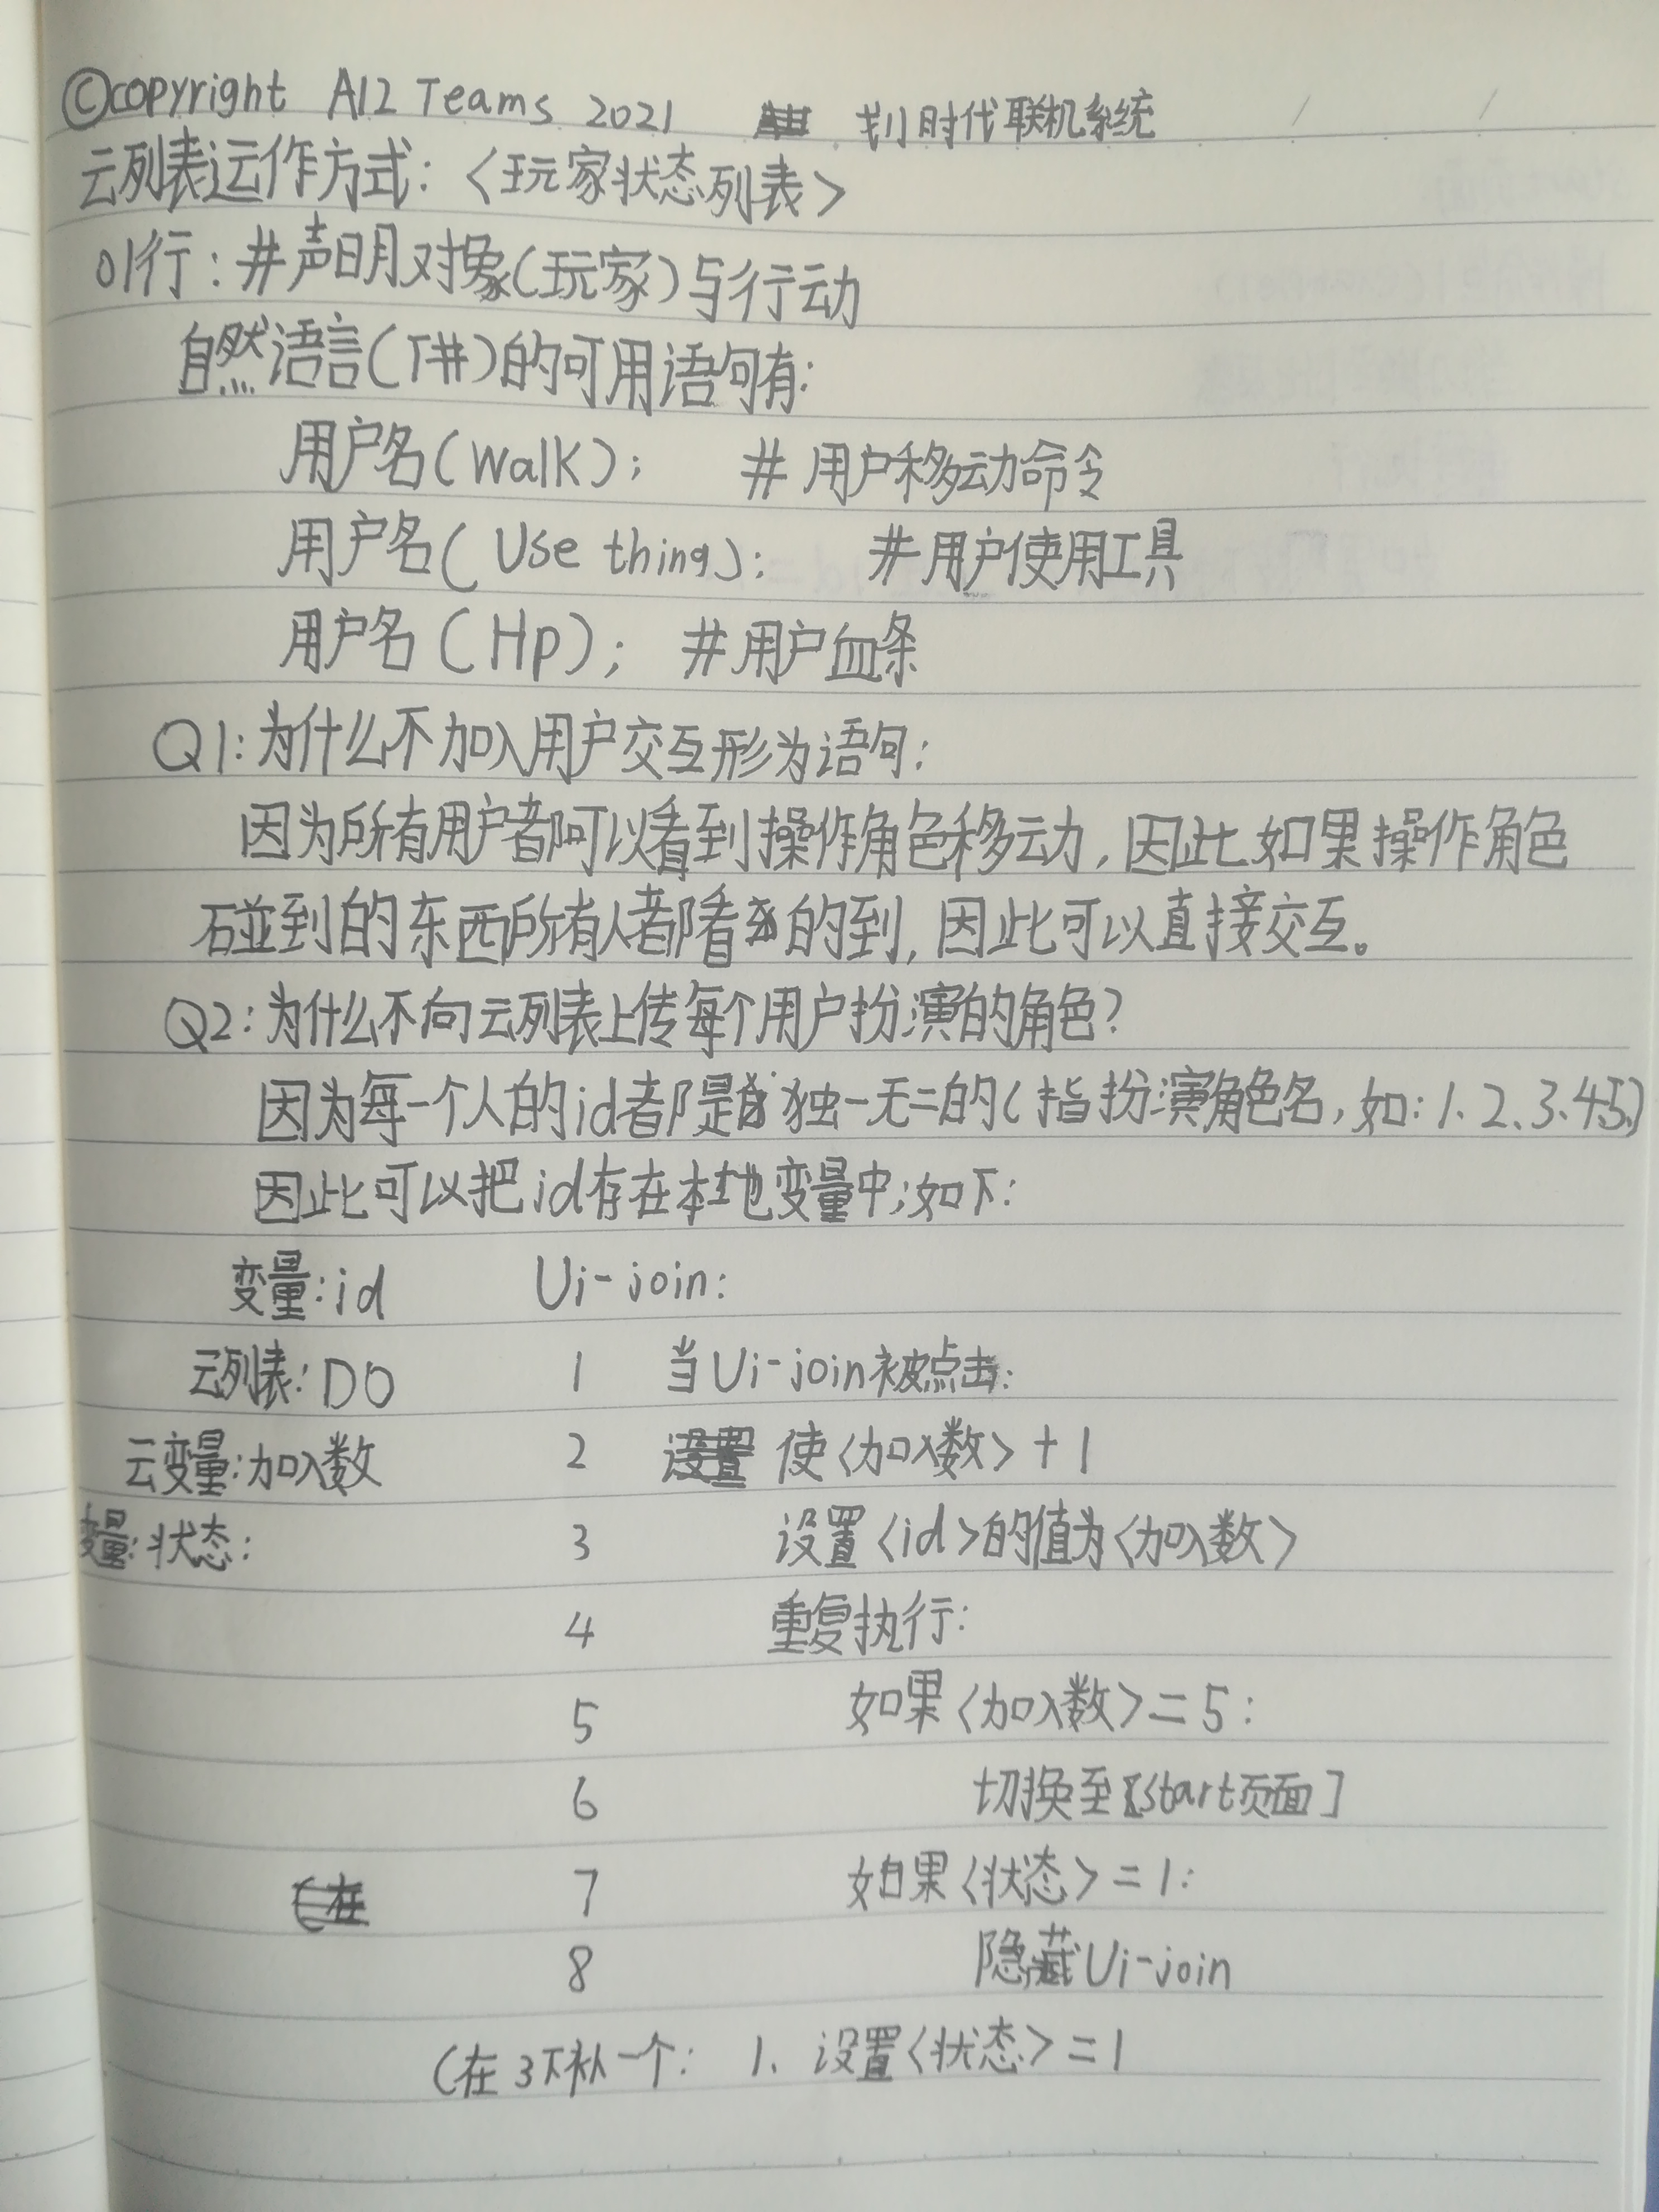 ©copyright A12 Teams 2021 划时代联机系统
云列表运作方式:〈玩家状态列表〉
01行:#声明对象(玩家)与行动
自然语言(T#)的可用语句有:
用户名(Walk); #用户移动命令
用户名(Use thing); #用户使用工具
用户名(Hp); #用户血条
Q1:为什么不加入用户交互形为语句:
因为所有用户都可以看到操作角色移动,因此如果操作角色
碰到的东西所有人都看的到,因此可以直接交互。
Q2:为什么不向云列表上传每个用户扮演的角色?
因为每一个人的id都是独一无二的(指扮演角色名,如:1、2、3、4、5、)
因此可以把id存在本地变量中;如下:
变量:id Ui-join:
云列表:DO 1 当Ui-join被点击:
云变量:加入数 2 使〈加入数〉+1
变量:状态: 3 设置〈id〉的值为〈加入数〉
4 重复执行:
5 如果〈加入数〉=5:
6 切换至[Start页面]
7 如果〈状态〉=1:
8 隐藏Ui-join
(在3下补一个: 1、设置〈状态〉=1